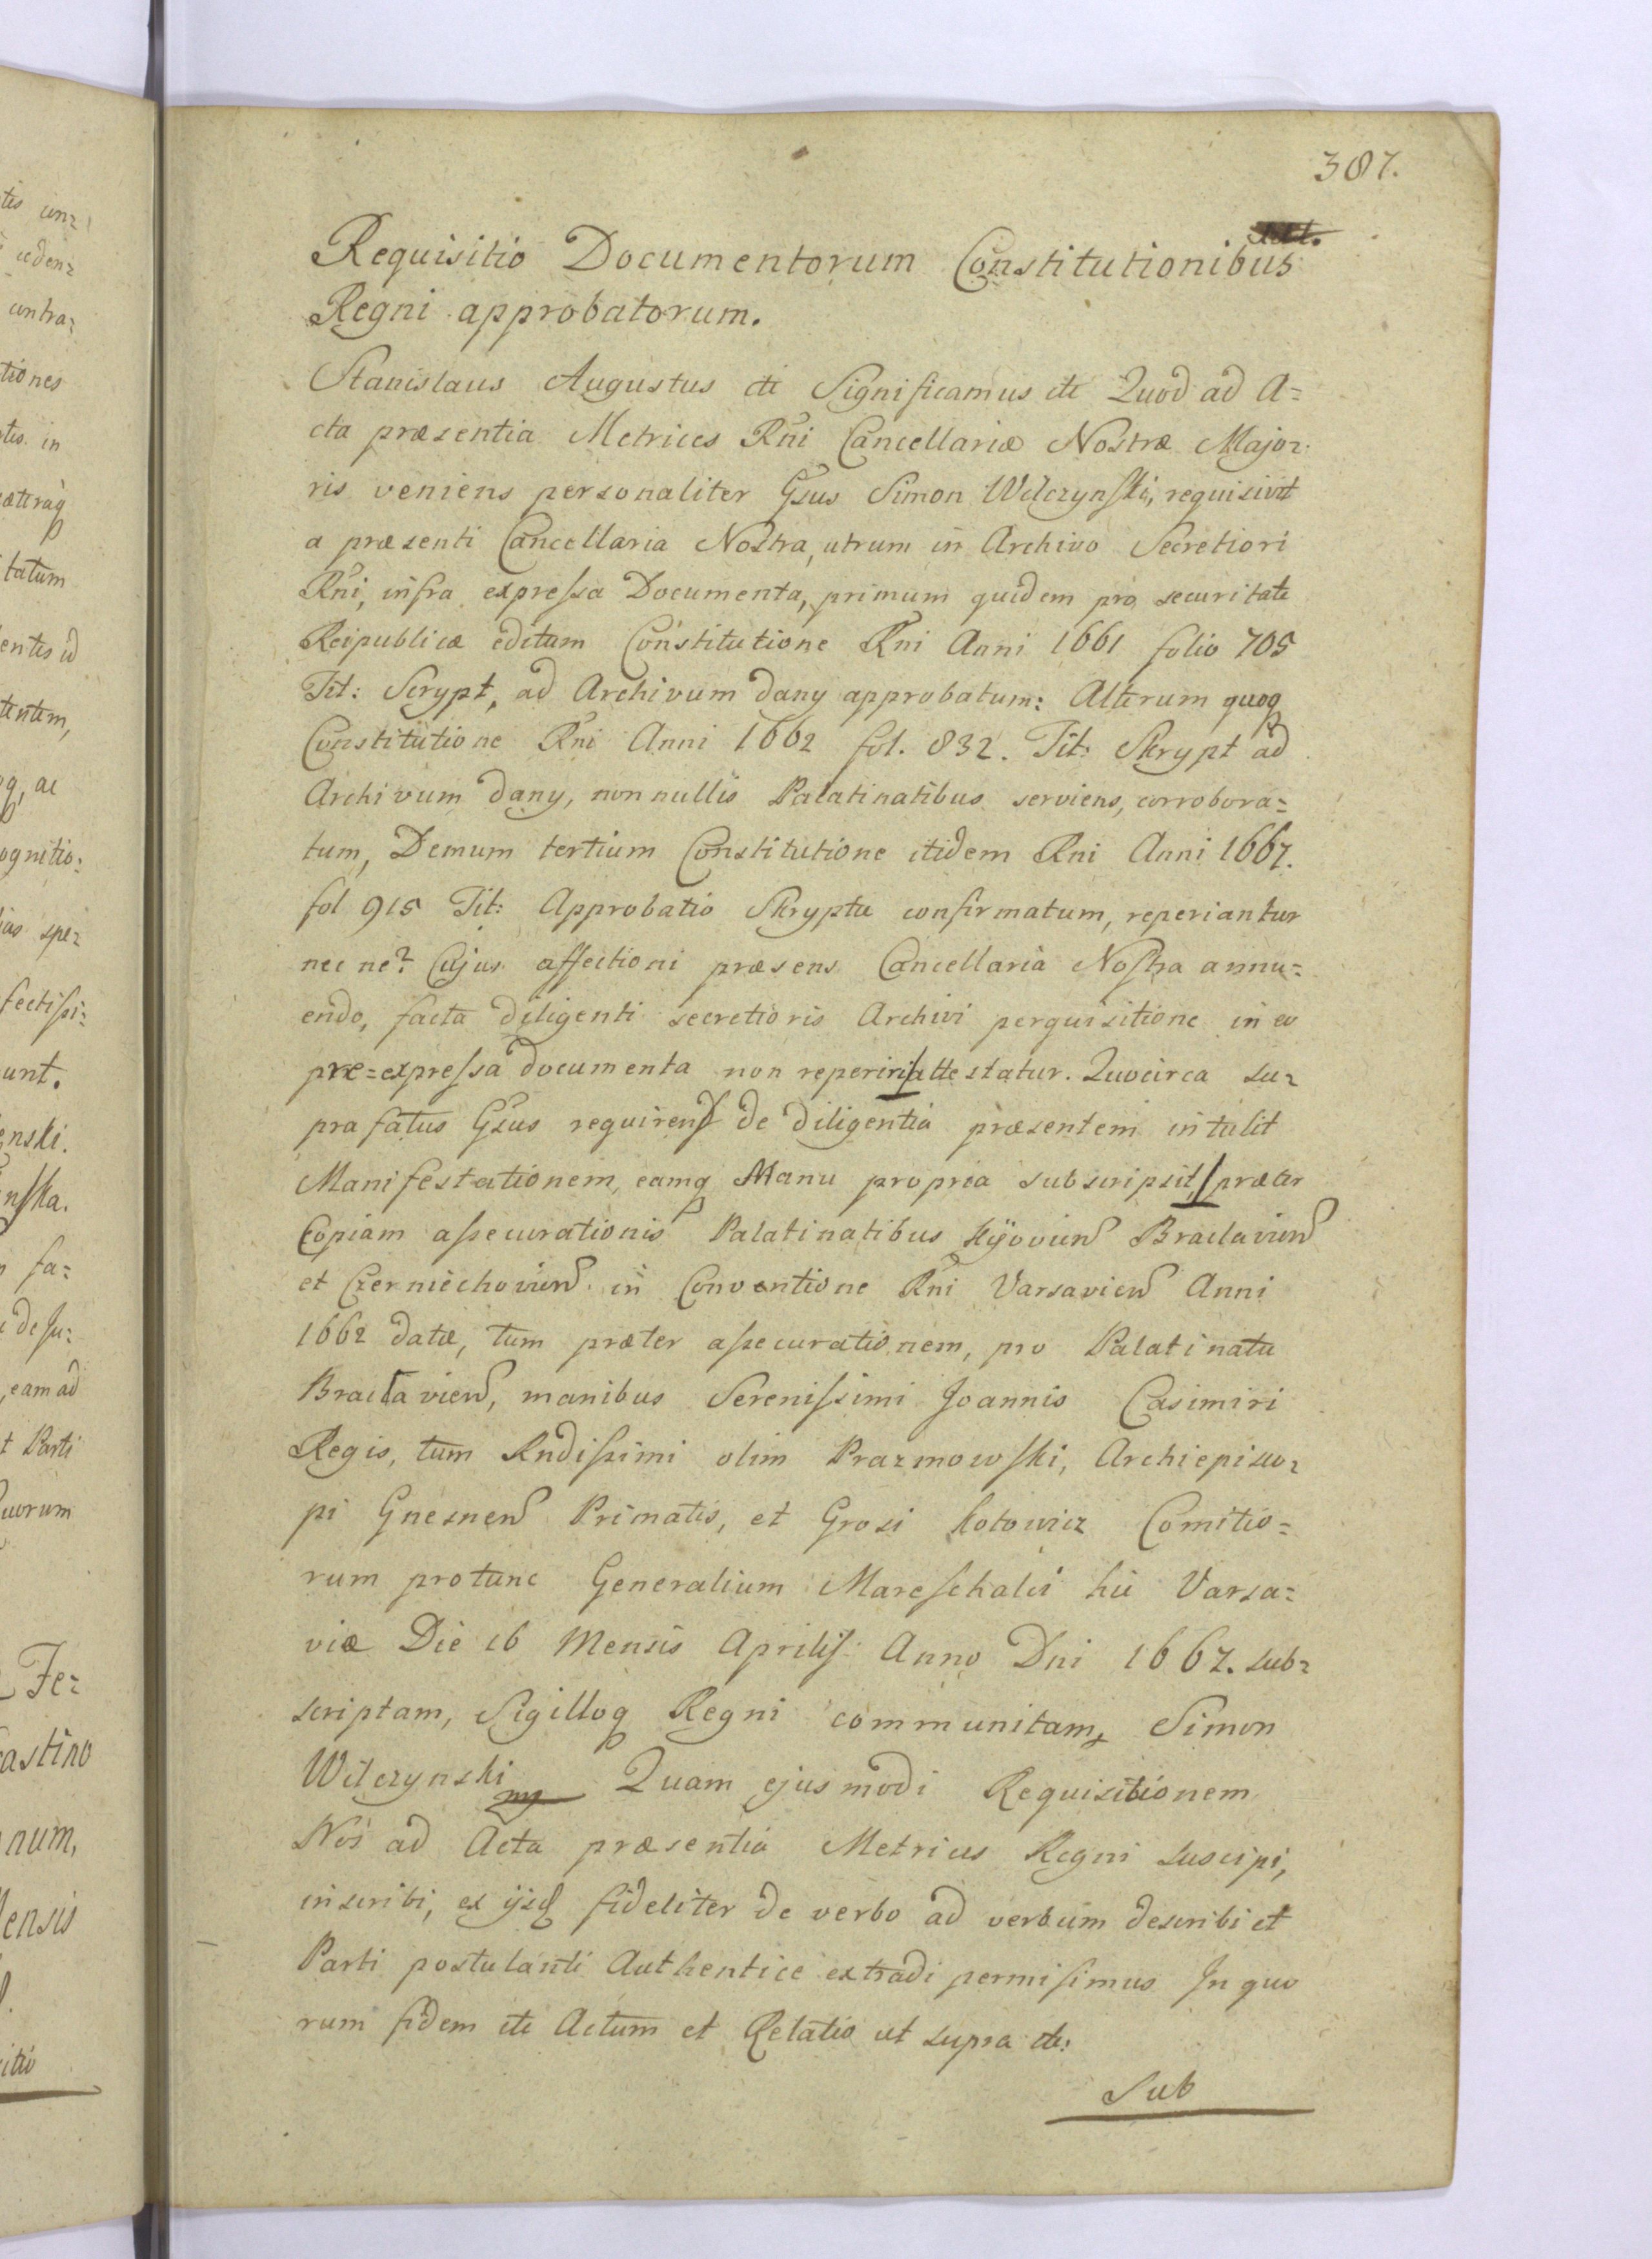 387.
Requisitio Documentorum Constitutionibus
Regni approbatorum.
Stanislaus Augustus etc Significamus etc Quod ad A=
cta præsentia Metrices Rñi Cancellariæ Nostræ Majo=
ris veniens personaliter Gsus Simon Wilczynski, requisivit
a præsenti Cancellaria Nostra, utrum in Archivo Secretiori
Rñi, infra expressa Documenta, primum quidem pro securitate
Reipublicæ editum Constitutione Rñi Anni 1661 folio 705
Tit: Scrypt, ad Archivum dany approbatum: Alterum quoq
Constitutione Rñi Anni 1662 fol. 832. Tit: Skrypt ad
Archivum dany, non nullis Palatinatibus serviens, corrobora=
tum, Demum tertium Constitutione itidem Rñi Anni 1667.
fol 915 Tit: Approbatio Skryptu confirmatum, reperiantur
nec ne? Cujus affectioni præsens Cancellaria Nostra annu=
endo, facta diligenti secretioris Archivi perquisitione in eo
præ=expressa documenta non reperiri attestatur. Quocirca su=
pra fatus Gsus requirens de diligentia præsentem intulit
Manifestationem, eamq Manu propria subscripsit, præter
Copiam assecurationis Palatinatibus Kijovien Braclavien
et Czerniechovien in Conventione Rñi Varsavien Anni
1662 datæ, tum præter assecurationem, pro Palatinatu
Braclavien, manibus Serenissimi Joannis Casimiri
Regis, tum Rndissimi olim Prazmowski, Archiepisco=
pi Gnesnen Primatis, et Grosi Kotowicz Comitio=
rum protunc Generalium Mareschalci hic Varsa=
viæ Die 16 Mensis Aprilis Anno Dni 1667. sub=
scriptam, Sigilloq Regni communitam, Simon
Wilczynski mp Quam ejusmodi Requisitionem
Nos ad Acta præsentia Metrices Regni suscipi,
inscribi, ex ijsq fideliter de verbo ad verbum describi et
Parti postulanti Authentice extradi permisimus In quo
rum fidem etc Actum et Relatio ut supra etc:
Sub